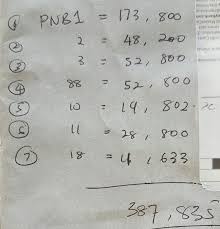 ① PNB1 = 173,800
② 2 = 48,200
③ 3 = 52,800
④ 88 = 52,800
⑤ 10 = 19,802.20
⑥ 11 = 28,800
⑦ 18 = 4,633
387,835